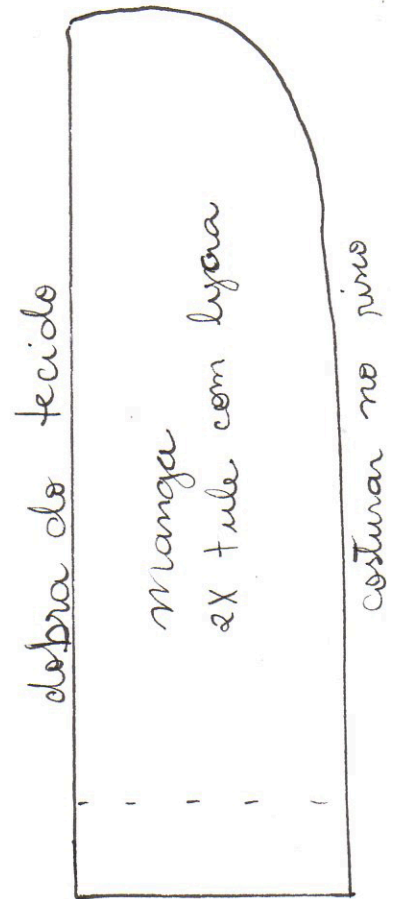 dobra do tecido
manga
2X tule com lycra
costurar no risco